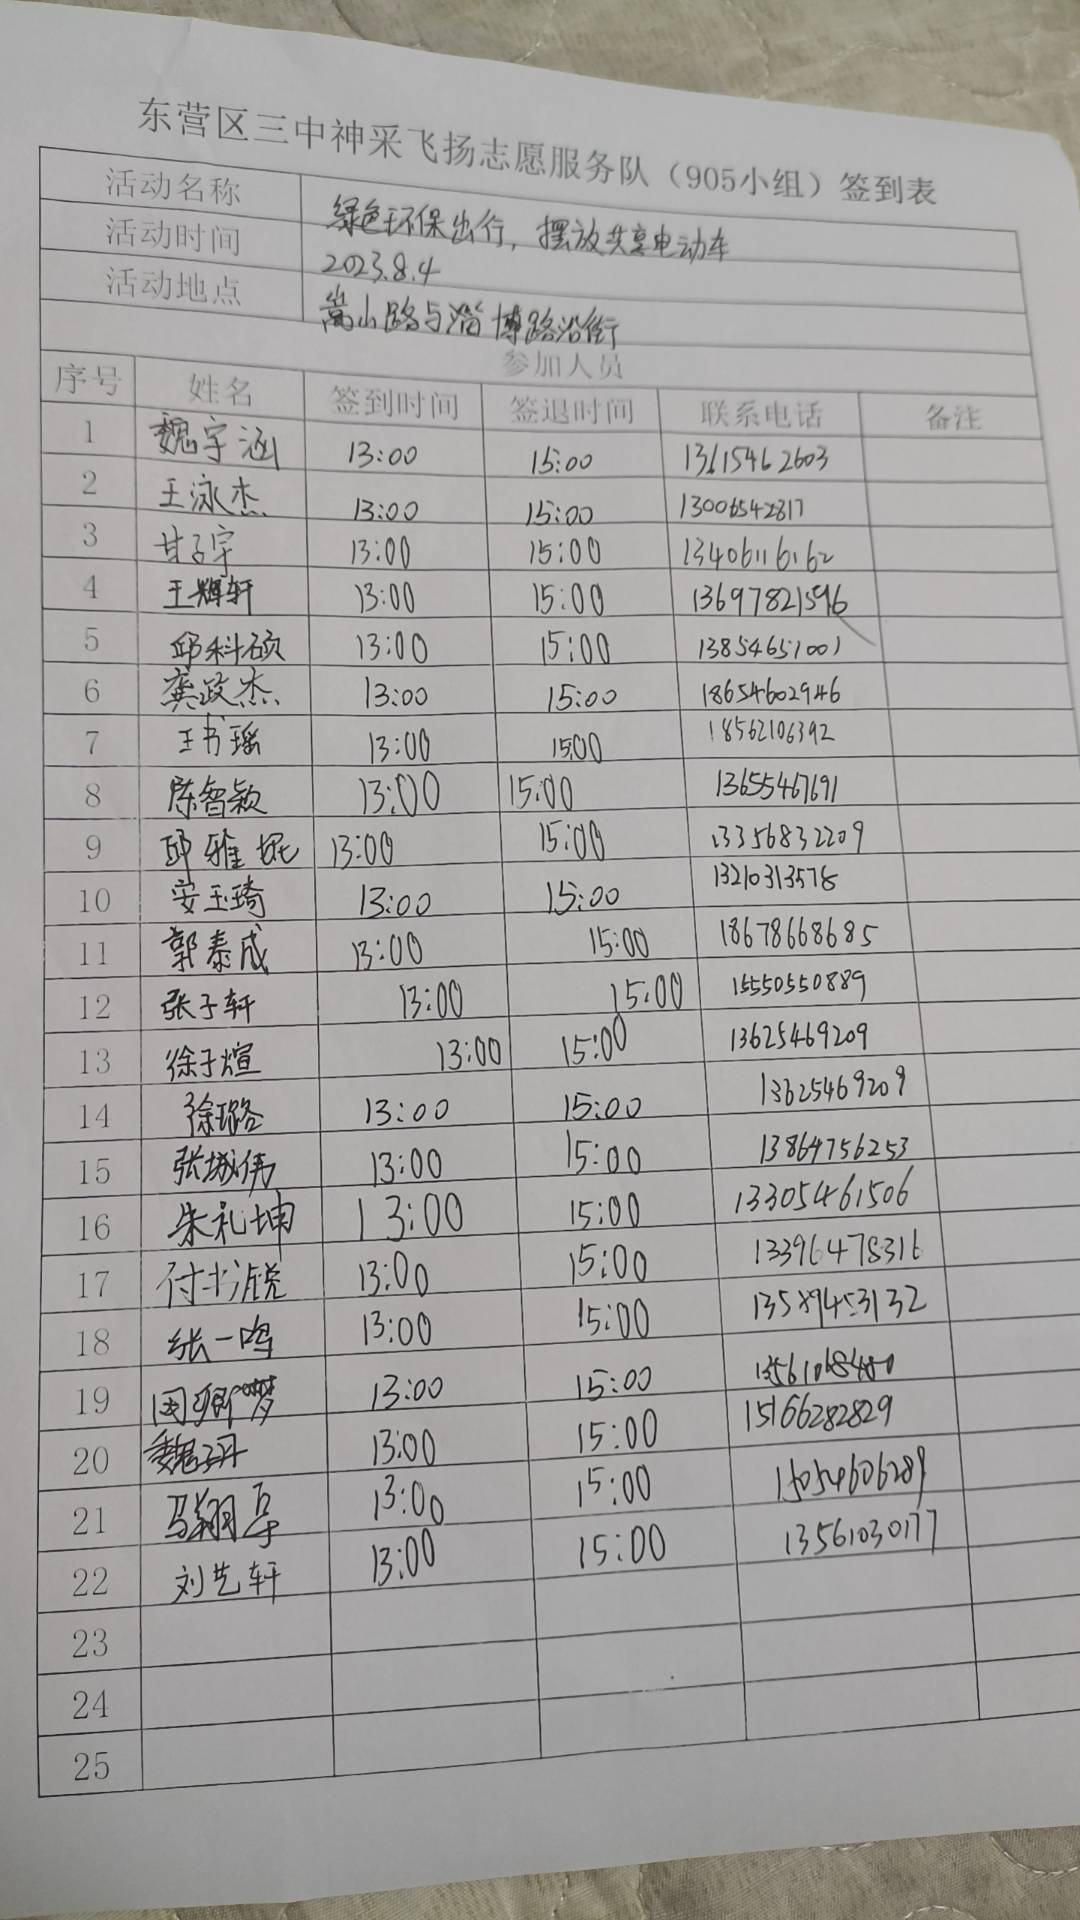 东营区三中神采飞扬志愿服务队（905小组）签到表
活动名称 绿色环保出行，摆放共享电动车
活动时间 2023.8.4
活动地点 嵩山路与淄博路沿街
参加人员
序号 姓名 签到时间 签退时间 联系电话 备注
1 魏宇涵 13:00 15:00 13615462603
2 王泳杰 13:00 15:00 13006542817
3 甘子宇 13:00 15:00 13406116162
4 王辉轩 13:00 15:00 13697821596
5 邱科硕 13:00 15:00 13854651001
6 龚政杰 13:00 15:00 18654602946
7 王书瑶 13:00 15:00 18562106392
8 陈智颖 13:00 15:00 13655467691
9 邱雅妮 13:00 15:00 13356832209
10 安玉琦 13:00 15:00 13210313578
11 郭泰成 13:00 15:00 18678668685
12 张子轩 13:00 15:00 15550550889
13 徐子煊 13:00 15:00 13625469209
14 徐璐 13:00 15:00 13625469209
15 张城伟 13:00 15:00 13864756253
16 朱礼坤 13:00 15:00 13305461506
17 付书锐 13:00 15:00 13396478316
18 张一鸣 13:00 15:00 13589453132
19 13:00 15:00
20 魏子丹 13:00 15:00 15166282829
21 13:00 15:00 15054606289
22 刘艺轩 13:00 15:00 13561030177
23
24
25